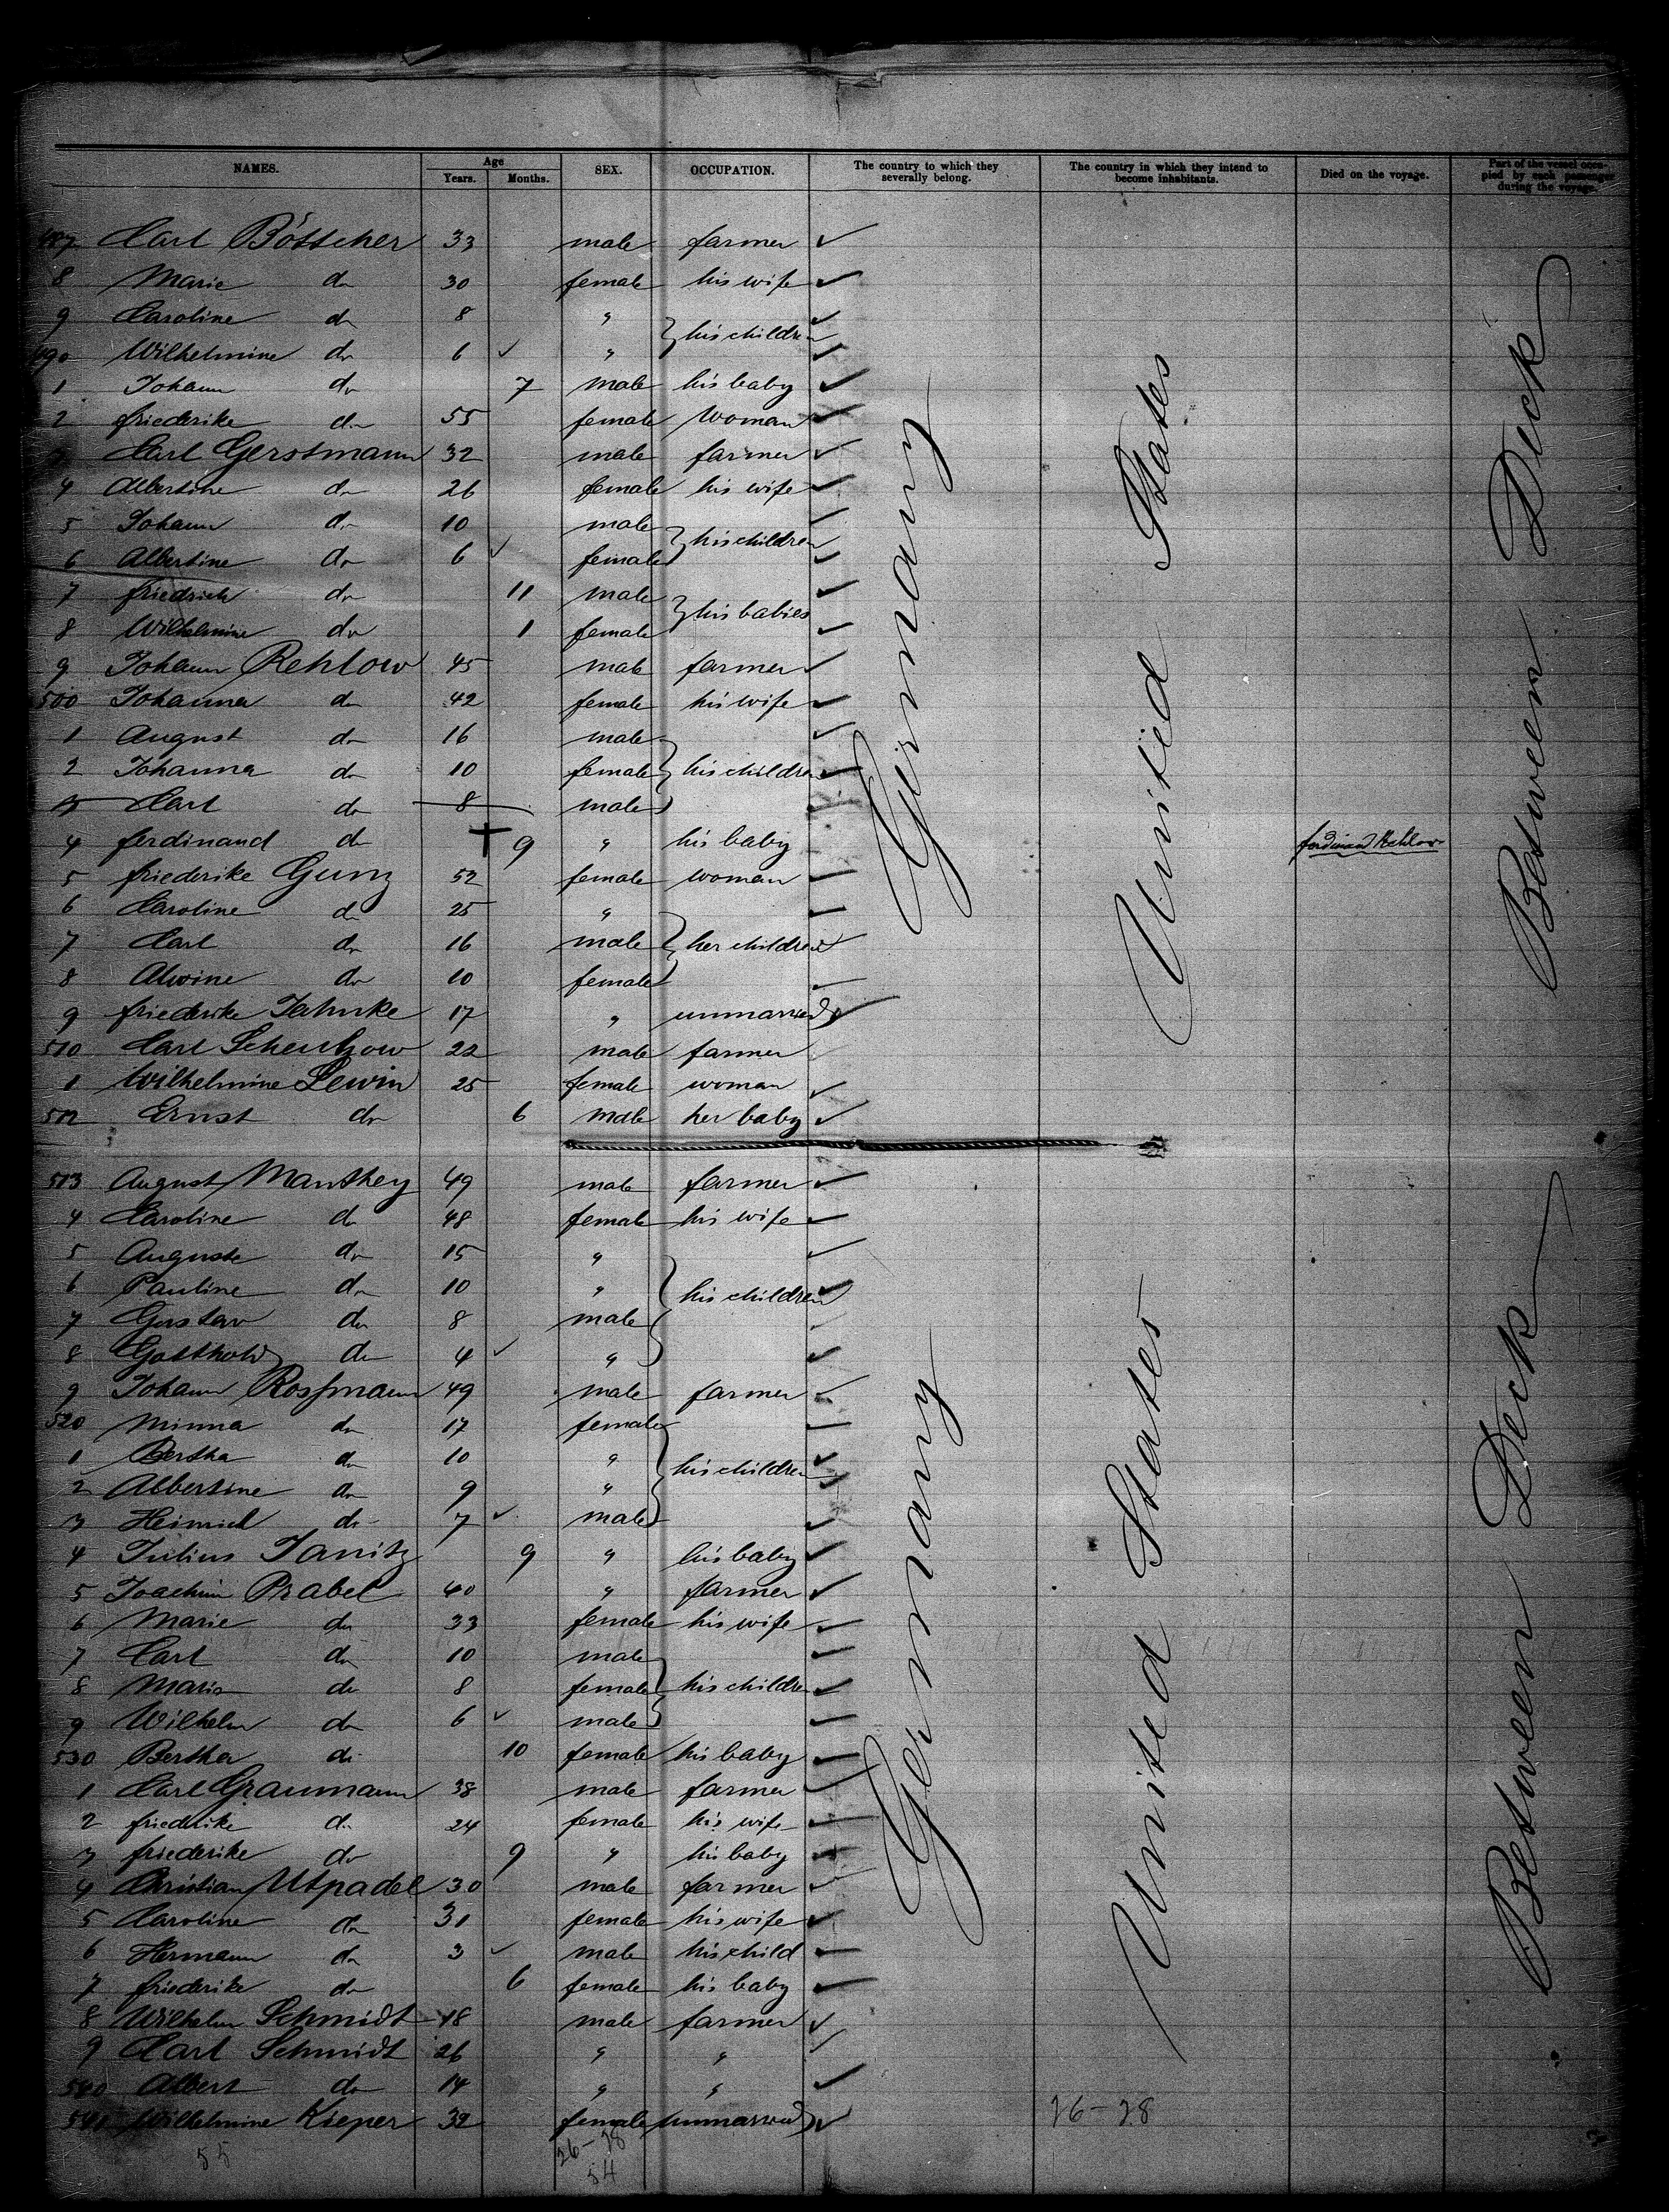 NAMES. Age Years. Months. SEX. OCCUPATION. The country to which they severally belong. The country in which they intend to become inhabitants. Died on the voyage. Part of the vessel occupied by each passenger during the voyage.
487 Carl Böttcher 33 male farmer
8 Marie do 30 female his wife
9 Caroline do 8 " } his children
490 Wilhelmine do 6 "
1 Johann do 7 male his baby
2 friederike do 55 female woman
3 Carl Gerstmann 32 male farmer
4 Albertine do 26 female his wife
5 Johann do 10 male } his children
6 Albertine do 6 female
7 friedrich do 11 male } his babies
8 Wilhelmine do 1 female
9 Johann Rehlow 45 male farmer
500 Johanna do 42 female his wife
1 August do 16 male
2 Johanna do 10 female } his children
3 Carl do 8 male
4 ferdinand do + 9 " his baby ferdinand Rehlow
5 friederike Gunz 52 female woman
6 Caroline do 25 "
7 Carl do 16 male } her children
8 Alwine do 10 female
9 friederike Jahnke 17 " unmarried
510 Carl 22 male farmer
1 Wilhelmine Lewin 25 female woman
512 Ernst do 6 male her baby
Germany United States Between Deck
513 August Manthey 49 male farmer
4 Caroline do 48 female his wife
5 Auguste do 15 "
6 Pauline do 10 " } his children
7 Gustav do 8 male
8 Gotthold do 4 "
9 Johann Rossmann 49 male farmer
520 Minna do 17 female
1 Bertha do 10 " } his children
2 Albertine do 9 "
3 Heinrich do 7 male
4 Julius Janitz 9 " his baby
5 Joachim Prabel 40 " farmer
6 Marie do 33 female his wife
7 Carl do 10 male
8 Marie do 8 female } his children
9 Wilhelm do 6 male
530 Bertha do 10 female his baby
1 Carl Graumann 38 male farmer
2 friederike do 24 female his wife
3 friederike do 9 " his baby
4 Christian Utpadel 30 male farmer
5 Caroline do 31 female his wife
6 Hermann do 3 male his child
7 friederike do 6 female his baby
8 Wilhelm Schmidt 18 male farmer
9 Carl Schmidt 26 " "
540 Albert do 14 " "
541 Wilhelmine Kieper 32 female unmarried
Germany United States Between Deck
26-28
55 26-28
54